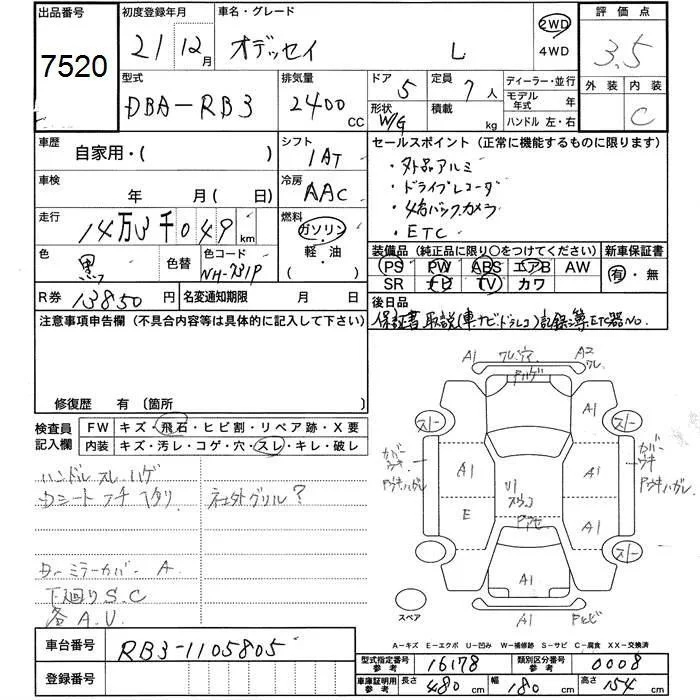 出品番号 初度登録年月 車名・グレード 評価点
7520 21 12月 オデッセイ L 2WD 4WD 3.5
型式 排気量 ドア 5 定員 7人 ディーラー・並行 外装 内装
DBA-RB3 2400 CC 形状 W/G 積載 kg モデル年式 年 C
ハンドル 左・右
車歴 自家用・( ) シフト 1AT セールスポイント (正常に機能するものに限ります)
・外品アルミ
車検 年 月(日) 冷房 AAC ・ドライブレコーダ
走行 14万3千049km 燃料 ガソリン・軽油 ・バックカメラ
・ETC
色 黒 色替 色コード NH-731P 装備品 (純正品に限り○をつけてください) 新車保証書
PS PW ABS エアB AW 有・無
SR ナビ TV カワ
R券 13850円 名変通知期限 月 日 後日品
注意事項申告欄 (不具合内容等は具体的に記入して下さい) 保証書 取説(車、ナビ、ドラレコ) 記録簿 ETC器No.
A1 A2
ワレ
修復歴 有 〔箇所 A1
検査員記入欄 FW キズ・飛石・ヒビ割・リペア跡・X要 スレ スレ
内装 キズ・汚レ・コゲ・穴・スレ・キレ・破レ カバーウキ カバーウキ
ハンドル スレ ハゲ A1 A1
社外グリル? U1
E A1
ミラーカバー A スレ
下廻り S.C A1
各 A.U スペア A1
車台番号 RB3-1105805 A-キズ E-エクボ U-凹み W-補修跡 S-サビ C-腐食 XX-交換済
登録番号 型式指定番号参考 16178 類別区分番号参考 0008
車庫証明用参考 長さ 480cm 幅 180cm 高さ 154cm